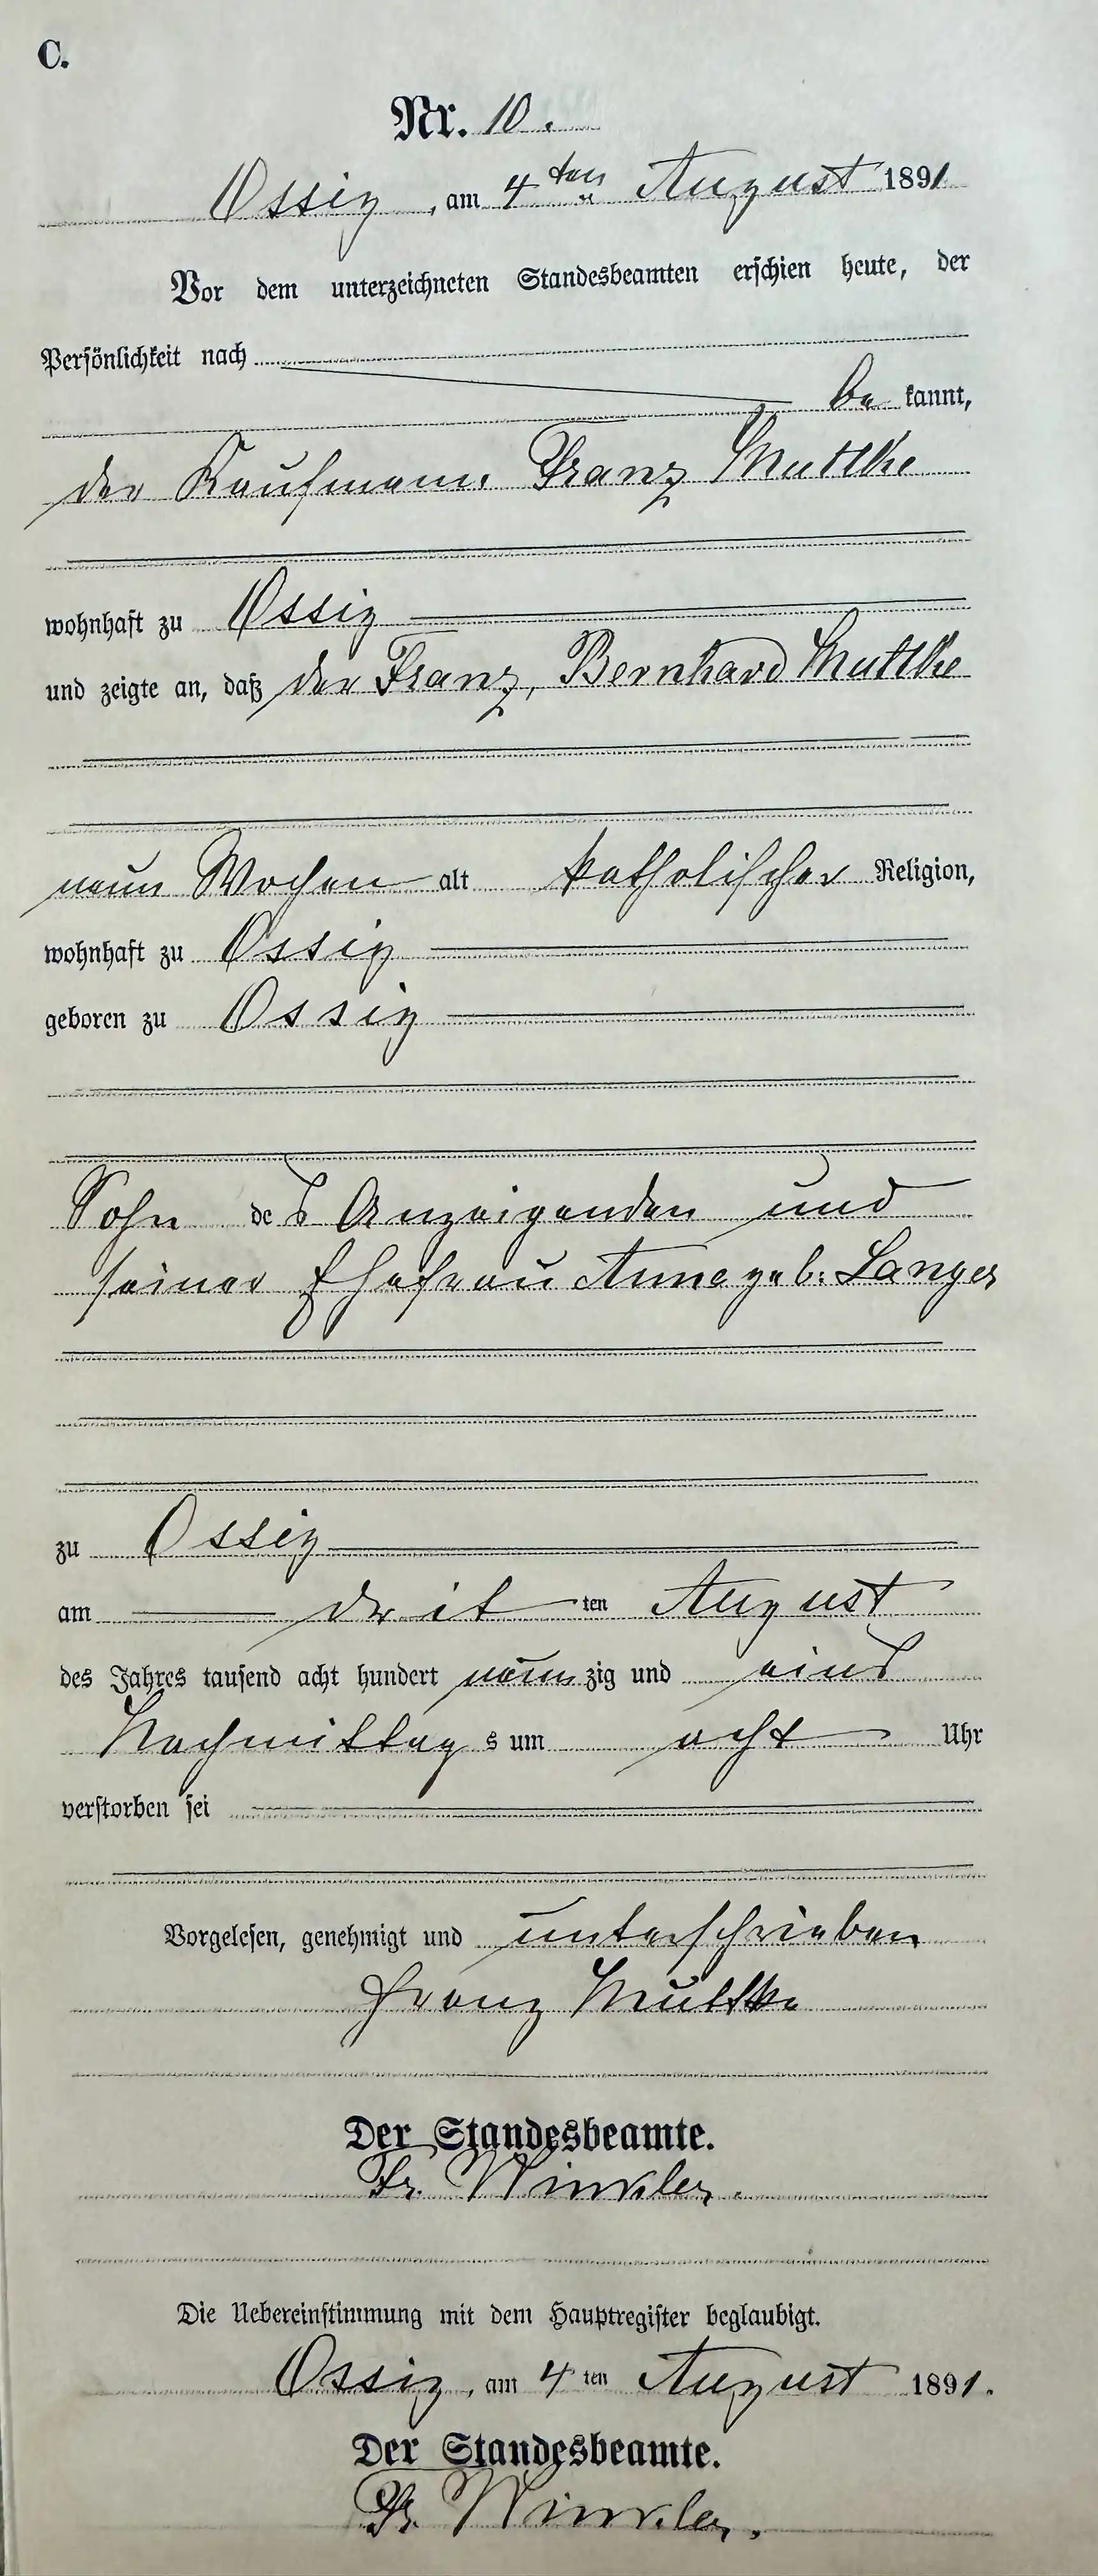 C.
Nr. 10.
Ossig, am 4ten August 1891
Vor dem unterzeichneten Standesbeamten erschien heute, der
Persönlichkeit nach
be kannt,
der Kaufmann Franz Muttke
wohnhaft zu Ossig
und zeigte an, daß der Franz, Bernhard Muttke
neun Wochen alt katholischer Religion,
wohnhaft zu Ossig
geboren zu Ossig
Sohn des Anzeigenden und
seiner Ehefrau Anna geb. Langer
zu Ossig
am drit ten August
des Jahres tausend acht hundert neun zig und eins
Nachmittag s um acht Uhr
verstorben sei
Vorgelesen, genehmigt und unterschrieben
Franz Muttke
Der Standesbeamte.
Fr. Winkler.
Die Uebereinstimmung mit dem Hauptregister beglaubigt.
Ossig, am 4 ten August 1891.
Der Standesbeamte.
Fr. Winkler.